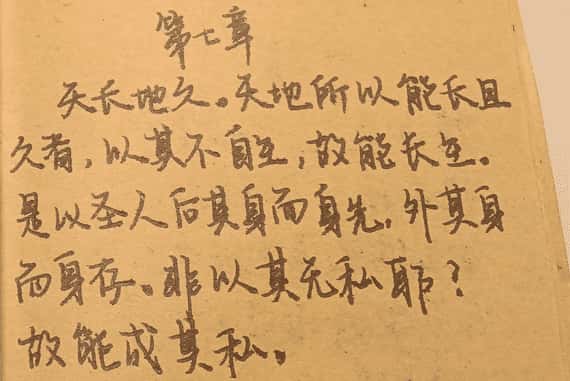 第七章
天长地久。天地所以能长且
久者，以其不自生，故能长生。
是以圣人后其身而身先，外其身
而身存。非以其无私耶？
故能成其私。